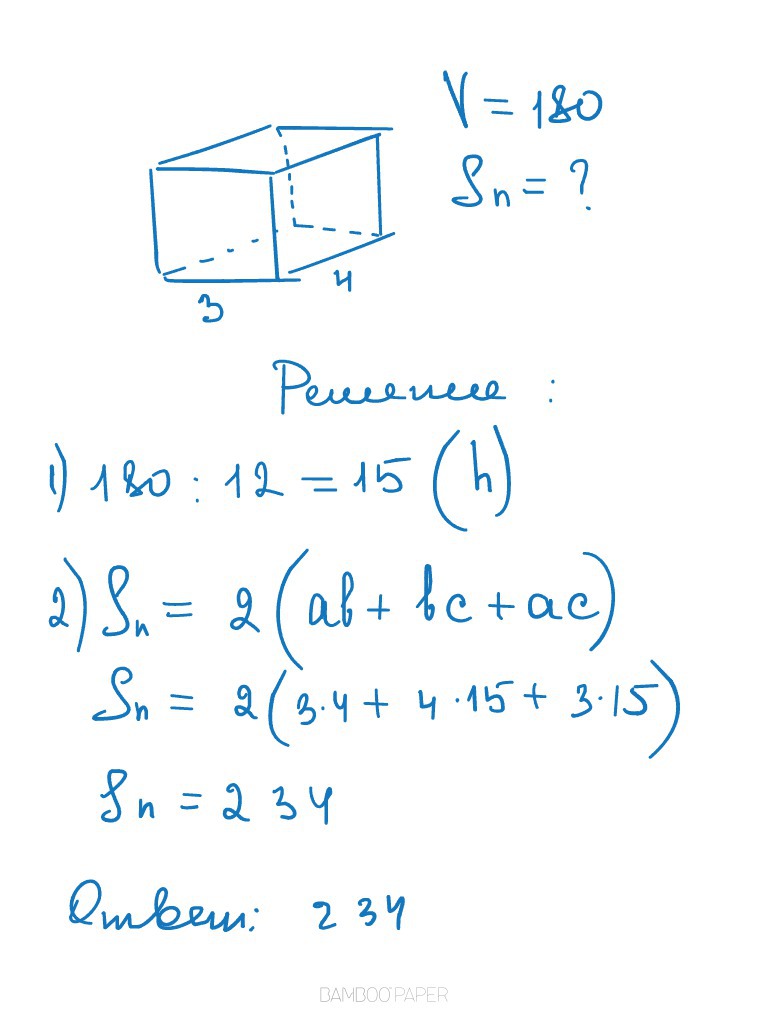 V = 180
Sп = ?
3
4
Решение :
1) 180 : 12 = 15 (h)
2) Sп = 2 (ab + bc + ac)
Sп = 2(3·4 + 4·15 + 3·15)
Sп = 234
Ответ: 234
BAMBOO PAPER